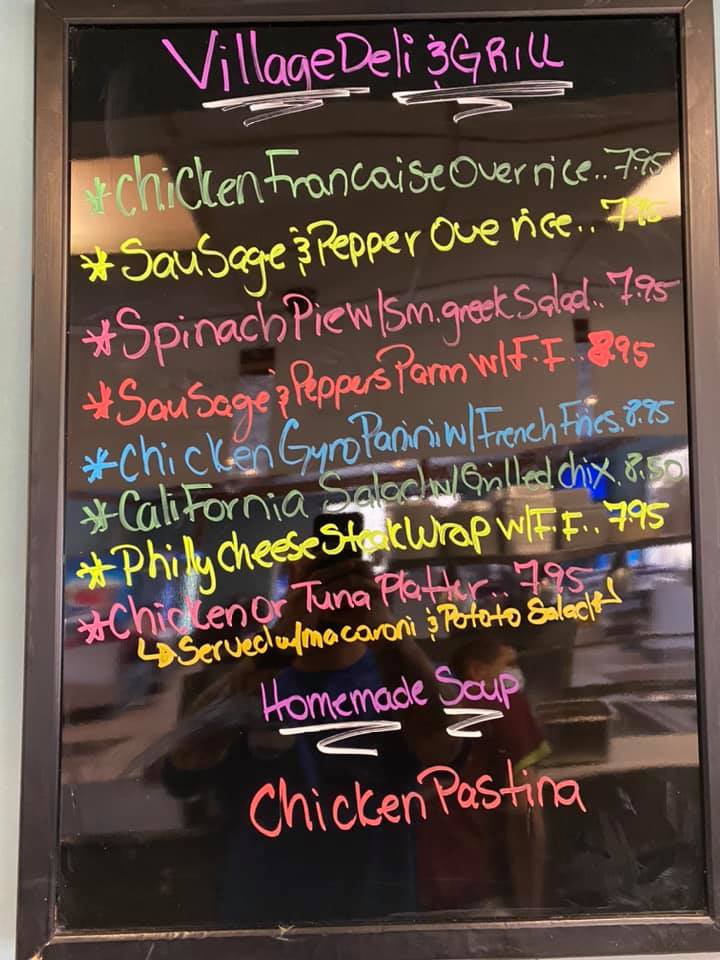 Village Deli & GRILL
*Chicken Francaise Over rice..7.95
*Sausage & Pepper Ove rice..7.95
*Spinach Pie w/Sm. greek Salad..7.95
*Sausage & Peppers Parm w/F.F..8.95
*Chicken Gyro Panini w/French Fries.8.95
*California Salad w/Grilled chix.8.50
*Philly Cheese Steak Wrap w/F.F..7.95
*Chicken or Tuna Platter..7.95
↳Served w/macaroni & Potato Salad↵
Homemade Soup
Chicken Pastina